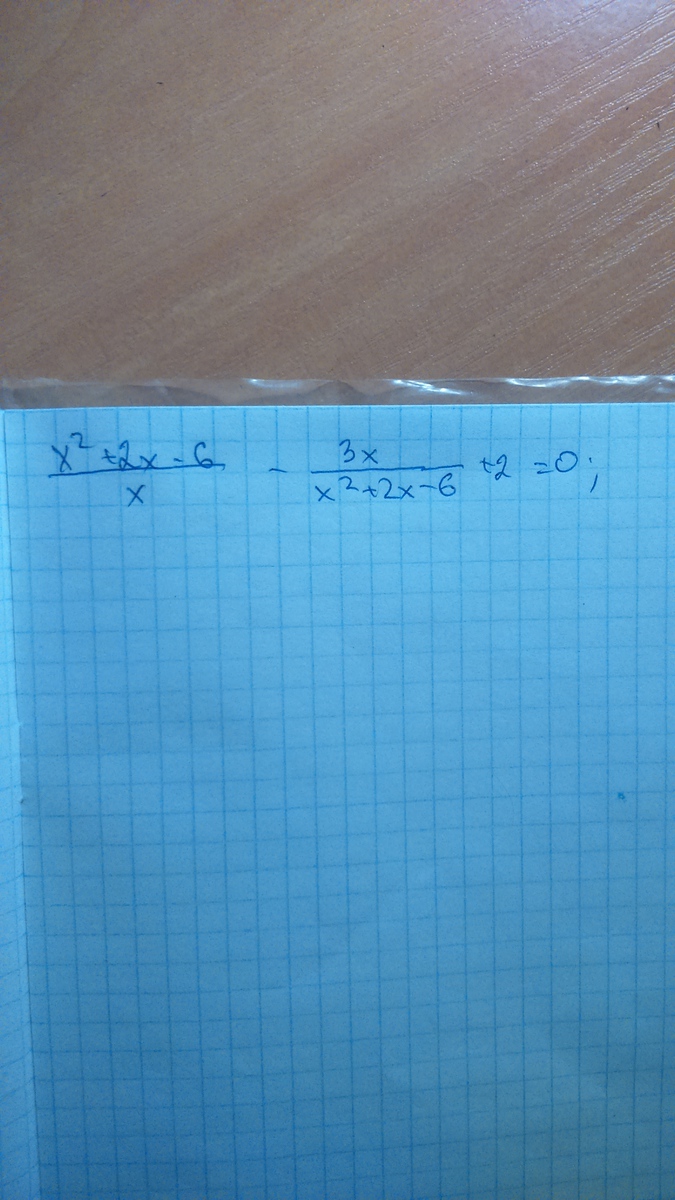 \frac{x^2+2x-6}{x} - \frac{3x}{x^2+2x-6} +2 =0;